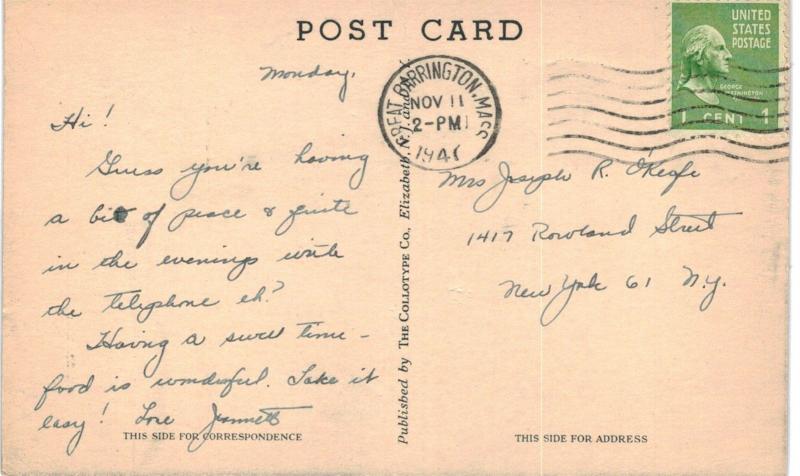 POST CARD
Monday,
Hi!
Guess you're having
a bit of peace & quite
in the evenings with
the telephone eh?
Having a swell time –
food is wonderful. Take it
easy! Love Jeannette
THIS SIDE FOR CORRESPONDENCE
Published by THE COLLOTYPE CO., Elizabeth, N.J. and
GREAT BARRINGTON, MASS
NOV 11
2-PM
194
UNITED
STATES
POSTAGE
GEORGE
WASHINGTON
1 CENT 1
Mrs Joseph R. O'Keefe
1417 Rowland Street
New York 61 N.Y.
THIS SIDE FOR ADDRESS